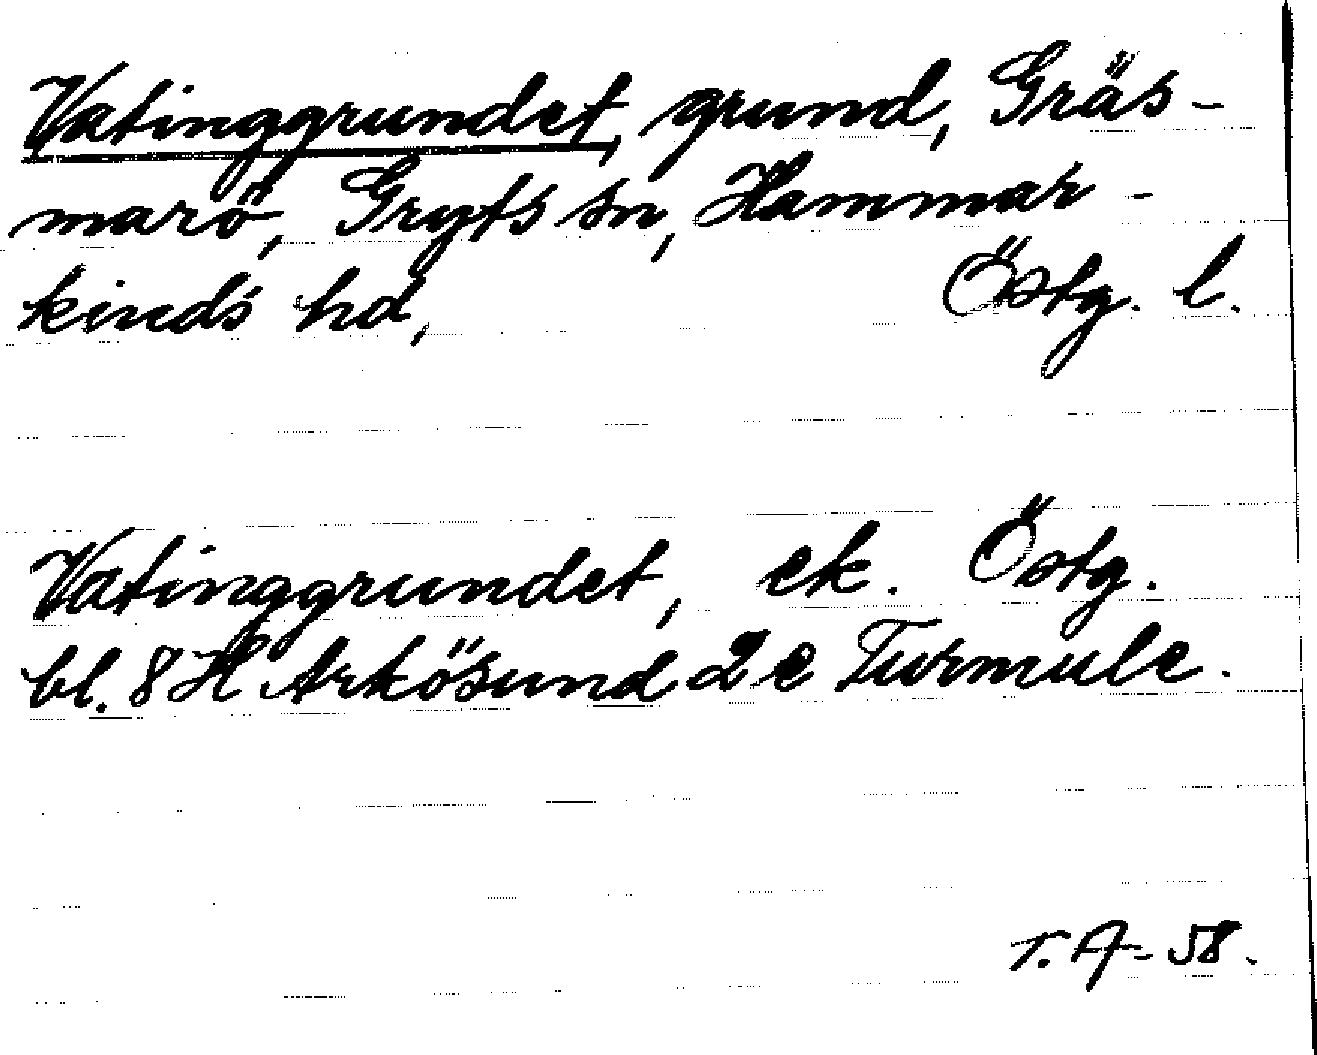 Vatinggrundet, grund, Gräs-
marö, Gryts sn, Hammar-
kinds hd, Östg. l.
Vatinggrundet, ek. Östg.
bl. 8 H Arkösund 2 e Turmule.
T. A - 58.